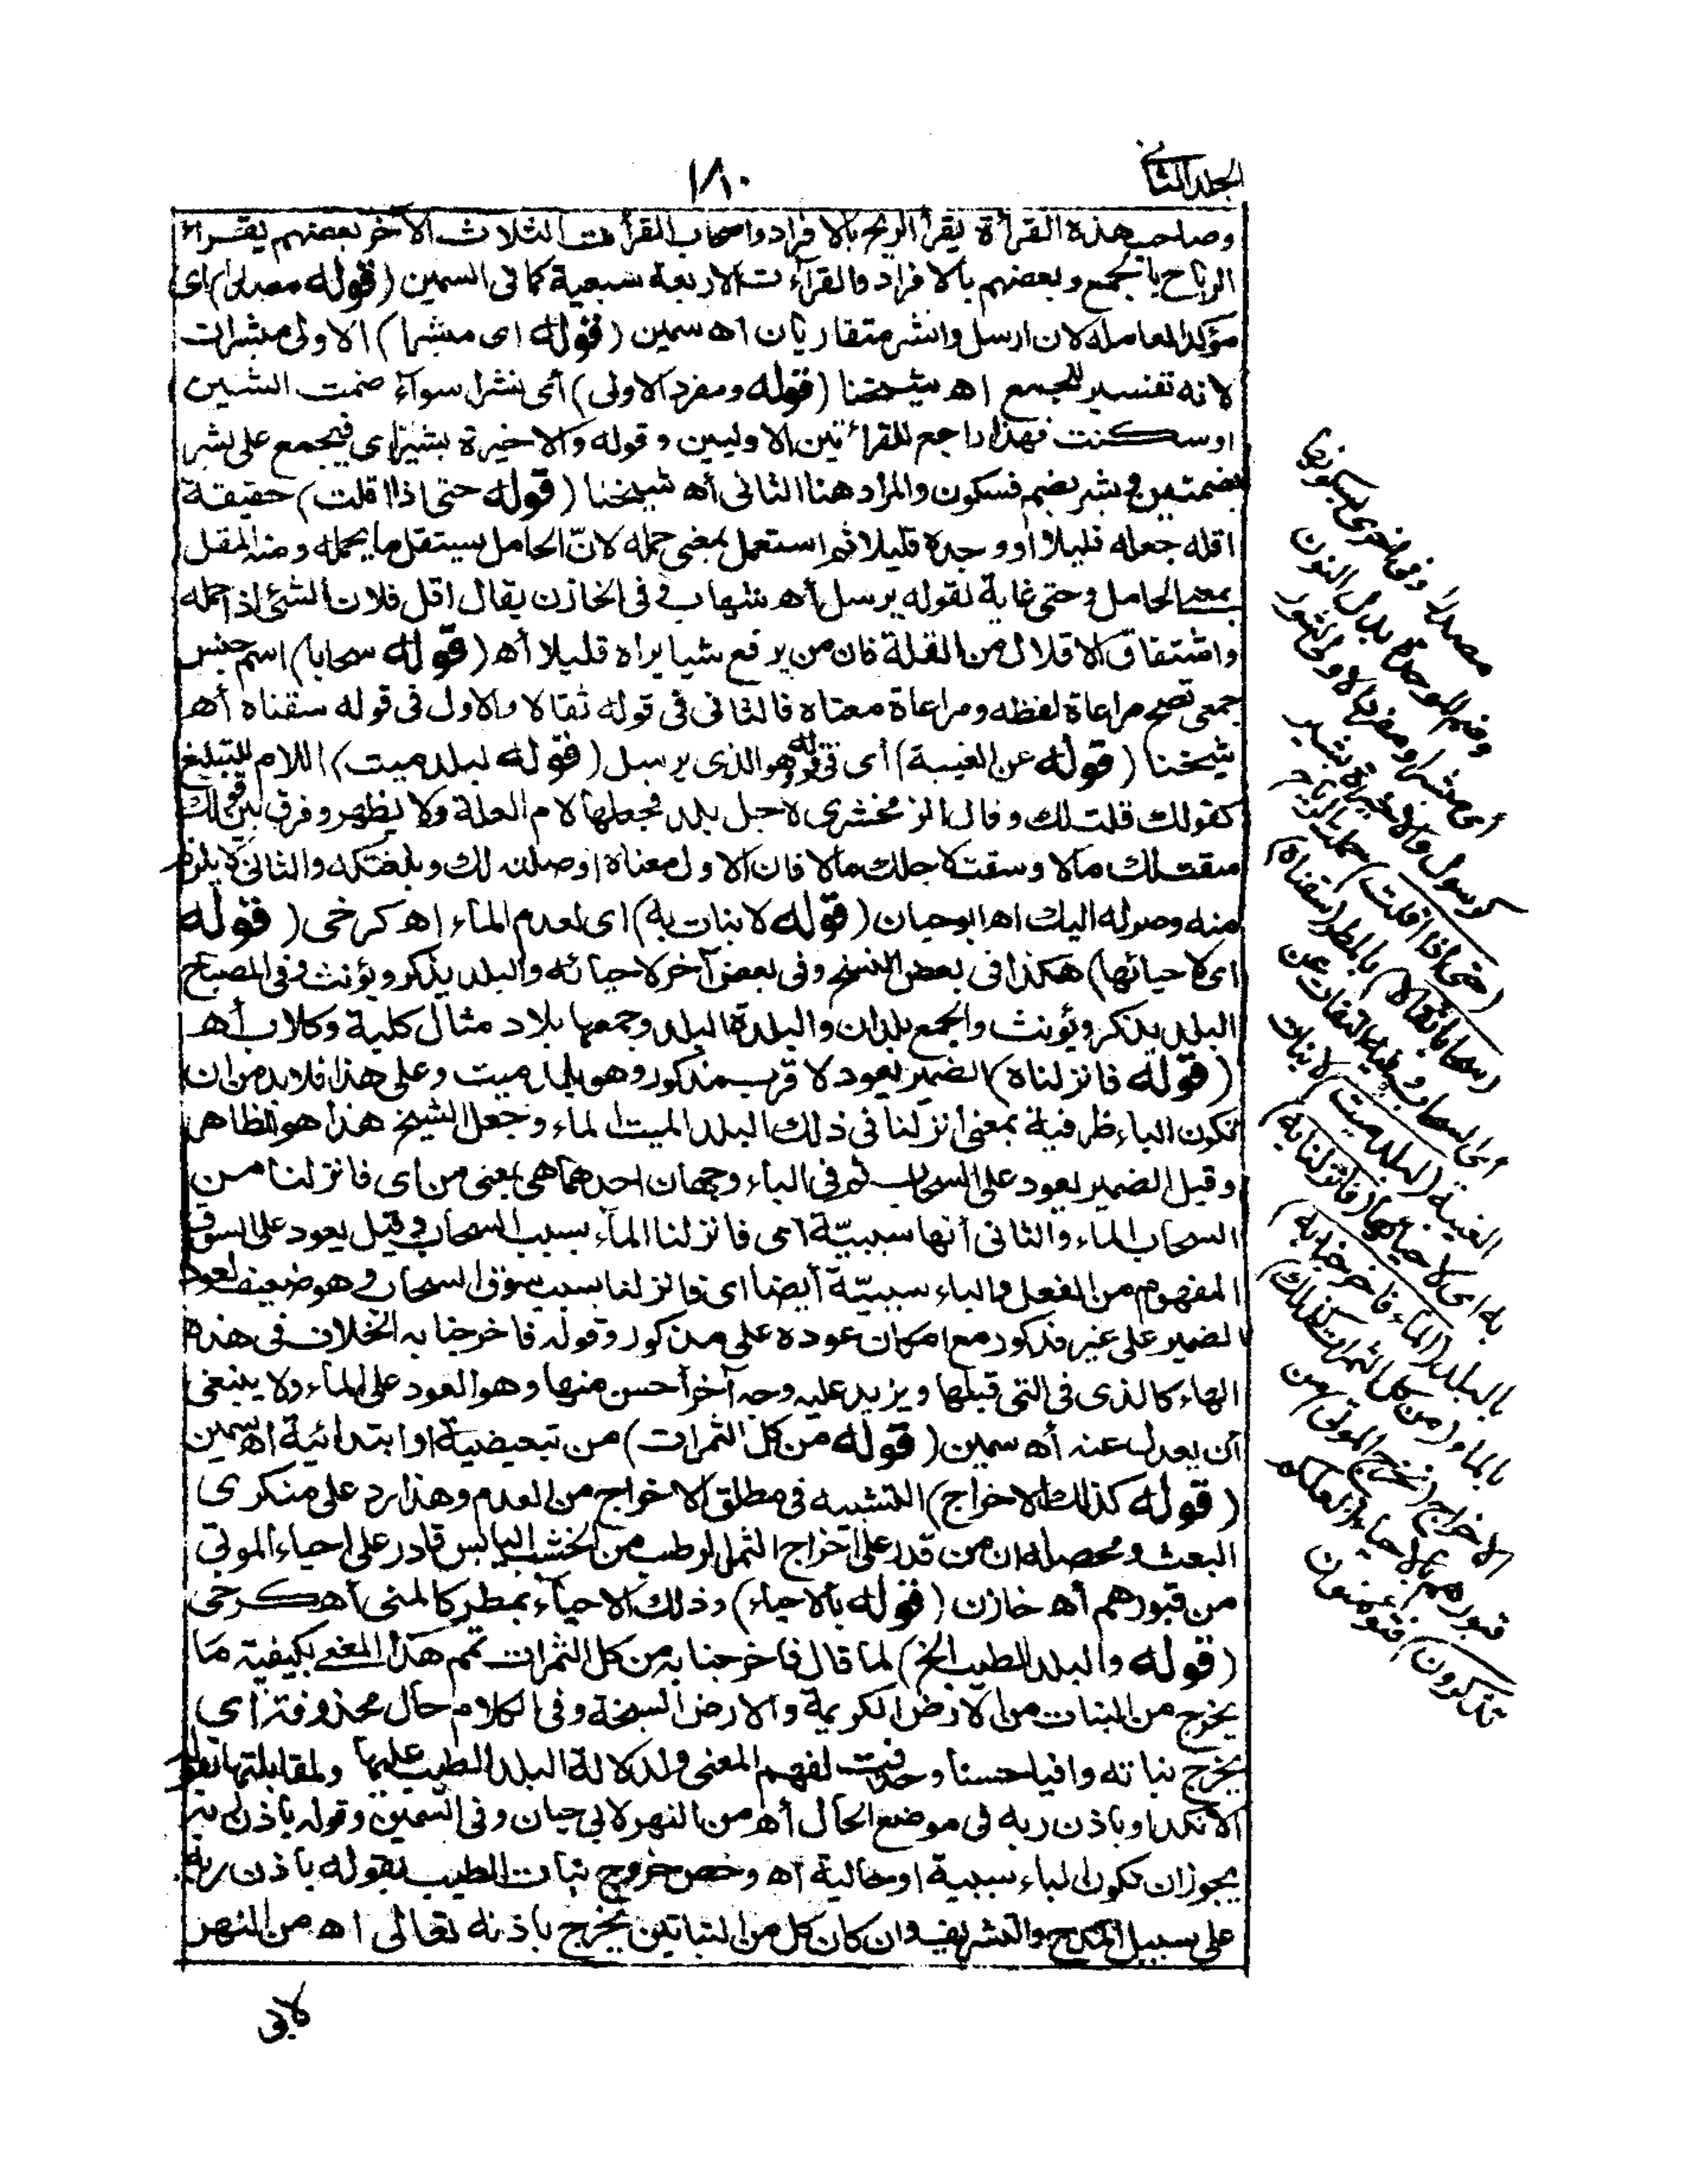 الجلد الثانى
١٨٠
وصاحب هذه القرأة يقرأ الريح بالافراد واصحاب القرأت الثلاث الآخر بعضهم يقرأ
الرياح بالجمع وبعضهم بالافراد والقرآءت الاربعة سبعية كما فى السمين (قوله مصدرا) اى
مؤكد لعامله لان ارسل وانشر متقاربان اه سمين (قوله اى مبشرا) الاولى مبشرات
لانه تفسير للجمع اه شيخنا (قوله ومفرد الاولى) أى نشرا سوآء ضمت الشين
او سكنت فهذا راجع للقراءتين الاوليين وقوله والاخيرة بشير اى فيجمع على بشر
بضمتين وبشر بضم فسكون والمراد هنا الثانى أه شيخنا (قوله حتى اذا اقلت) حقيقة
اقله جعله قليلا او وجده قليلا ثم استعمل بمعنى حمله لانّ الحامل يستقل ما يحمله ومنه المقل
بمعنى الحامل وحتى غاية لقوله يرسل أه شهاب وفى الخازن يقال اقل فلان الشئ اذا حمله
واشتقاق الاقلال من القلة فان من يرفع شيا يراه قليلا أه (قوله سحابا) اسم جنس
جمعى تصح مراعاة لفظه ومراعاة معناه فالثانى فى قوله ثقالا والاول فى قوله سقناه أه
شيخنا (قوله عن الغيبة) أى فى قوله وهو الذى يرسل (قوله لبلد ميت) اللام للتبليغ
كقولك قلت لك وقال الزمخشرى لاجل بلد فجعلها لام العلة ولا يظهر وفرق بين قولك
سقت لك مالا وسقت لاجلك مالا فان الاول معناه اوصلته لك وبلغتكه والثانى لا يلزم
منه وصوله اليك اه ابوحيان (قوله لا نبات به) اى لعدم الماء اه كرخى (قوله
اى لاحيائها) هكذا فى بعض النسخ وفى بعض آخر لاحيائه والبلد يذكر ويؤنث وفى المصباح
البلد يذكر ويؤنث والجمع بلدان والبلدة البلد وجمعها بلاد مثال كلبة وكلاب أه
(قوله فانزلناه) الضمير يعود لاقرب مذكور وهو بلد ميت وعلى هذا فلا بد من ان
تكون الباء ظرفية بمعنى انزلنا فى ذلك البلد الميت الماء وجعل الشيخ هذا هو الظاهر
وقيل الضمير يعود على السحاب ثم فى الباء وجهان احدهما هى بمعنى من اى فانزلنا من
السحاب الماء والثانى أنها سببيّة أى فانزلنا المآء بسبب السحاب وقيل يعود على السوق
المفهوم من الفعل والباء سببيّة أيضا اى فانزلنا بسبب سوق السحاب وهو ضعيف لعود
الضمير على غير مذكور مع امكان عوده على مذكور وقوله فاخرجنا به الخلاف فى هذه
الهاء كالذى فى التى قبلها ويزيد عليه وجه آخر أحسن منها وهو العود على الماء ولا ينبغى
أن يعدل عنه أه سمين (قوله من كل الثمرات) من تبعيضية او ابتدائية اه سمين
(قوله كذلك الاخراج) التشبيه فى مطلق الاخراج من العدم وهذا رد على منكرى
البعث ومحصله ان من قدر على اخراج الثمر الرطب من الخشب اليابس قادر على احياء الموتى
من قبورهم أه خازن (قوله بالاحياء) وذلك الاحيآء بمطر كالمنى أه كرخى
(قوله والبلد الطيب الخ) لما قال فاخرجنا به من كل الثمرات تمم هذا المعنى بكيفية ما
يخرج من النبات من الارض الكريمة والارض السبخة وفى الكلام حال محذوفة اى
يخرج نباته وافيا حسنا وحذفت لفهم المعنى ولدلالة البلد الطيب عليها ولمقابلتها بقوله
الا نكدا وباذن ربه فى موضع الحال أه من النهر لابى حيان وفى السمين وقوله باذن ربه
يجوز ان تكون الباء سببية او حالية أه وخص خروج نبات الطيب بقوله باذن ربه
على سبيل المدح والتشريف وان كان كل من النباتين يخرج باذنه تعالى اه من النهر
لابى
مصدرا وفى اخرى بسكونها
وضم الموحدة بدل النون
أى مبشرا ومفرد الاولى نشور
كرسول والاخيرة بشير
(حتى اذا اقلت) حملت الرياح
(سحابا ثقالا) بالمطر (سقناه)
أى السحاب وفيه التفات عن
الغيبة (لبلد ميت) لا نبات
به اى لاحيائها (فانزلنا به)
بالبلد (الماء فاخرجنا به)
بالماء (من كل الثمرات كذلك)
الاخراج (نخرج الموتى) من
قبورهم بالاحياء (لعلكم
تذكرون) فتؤمنون